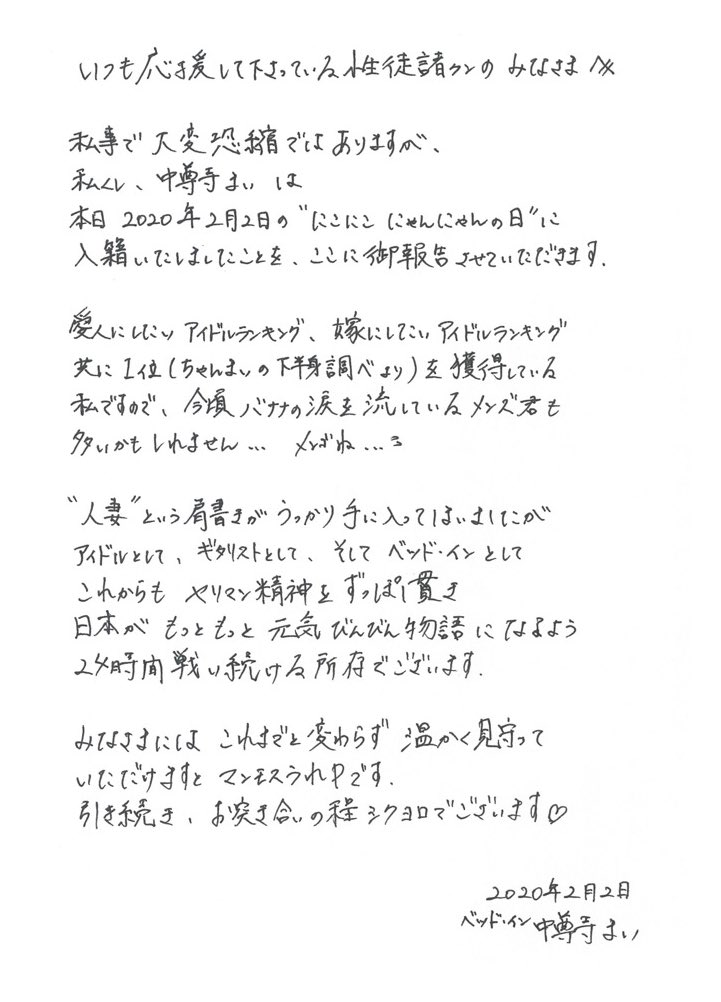 いつも応援して下さっている性徒諸クンのみなさまへ
私事で大変恐縮ではありますが、
私くし、中尊寺まい は
本日 2020年2月2日の"にこにこ にゃんにゃんの日"に
入籍いたしましたことを、ここに御報告させていただきます.
愛人にしたい アイドルランキング、嫁にしたい アイドルランキング
共に 1位(ちゃんまいの下半身調べより)を獲得している
私ですので、今頃 バナナの涙を流しているメンズ君も
多いかもしれません... メンゴね...ミ
"人妻"という肩書きが うっかり手に入ってしまいましたが
アイドルとして、ギタリストとして、そして ベッド・インとして
これからも ヤリマン精神を ずっぽし貫き
日本が もっともっと 元気びんびん物語になるよう
24時間 戦い続ける所存でございます.
みなさまには これまでと変わらず 温かく見守って
いただけますと マンモスうれPです.
引き続き、お突き合いの程シクヨロでございます♡
2020年2月2日
ベッド・イン 中尊寺まい